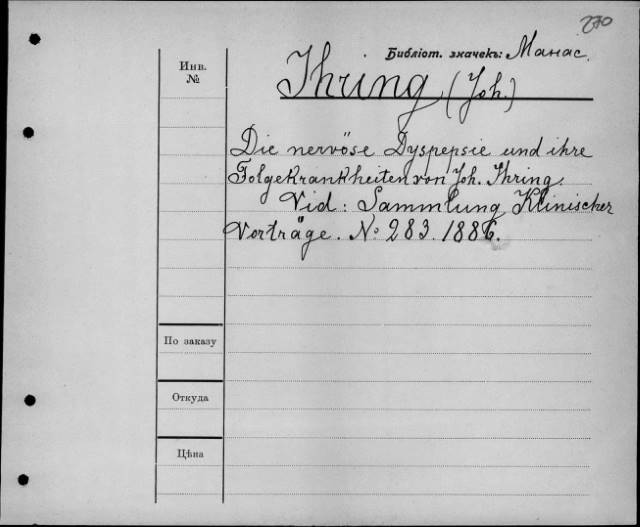 270
Библіот. значекъ: Манас.
Инв.
№
Ihring (Joh.)
Die nervöse Dyspepsie und ihre
Folgekrankheiten von Joh. Ihring.
Vid: Sammlung Klinischer
Vorträge. № 283. 1886.
По заказу
Откуда
Цѣна